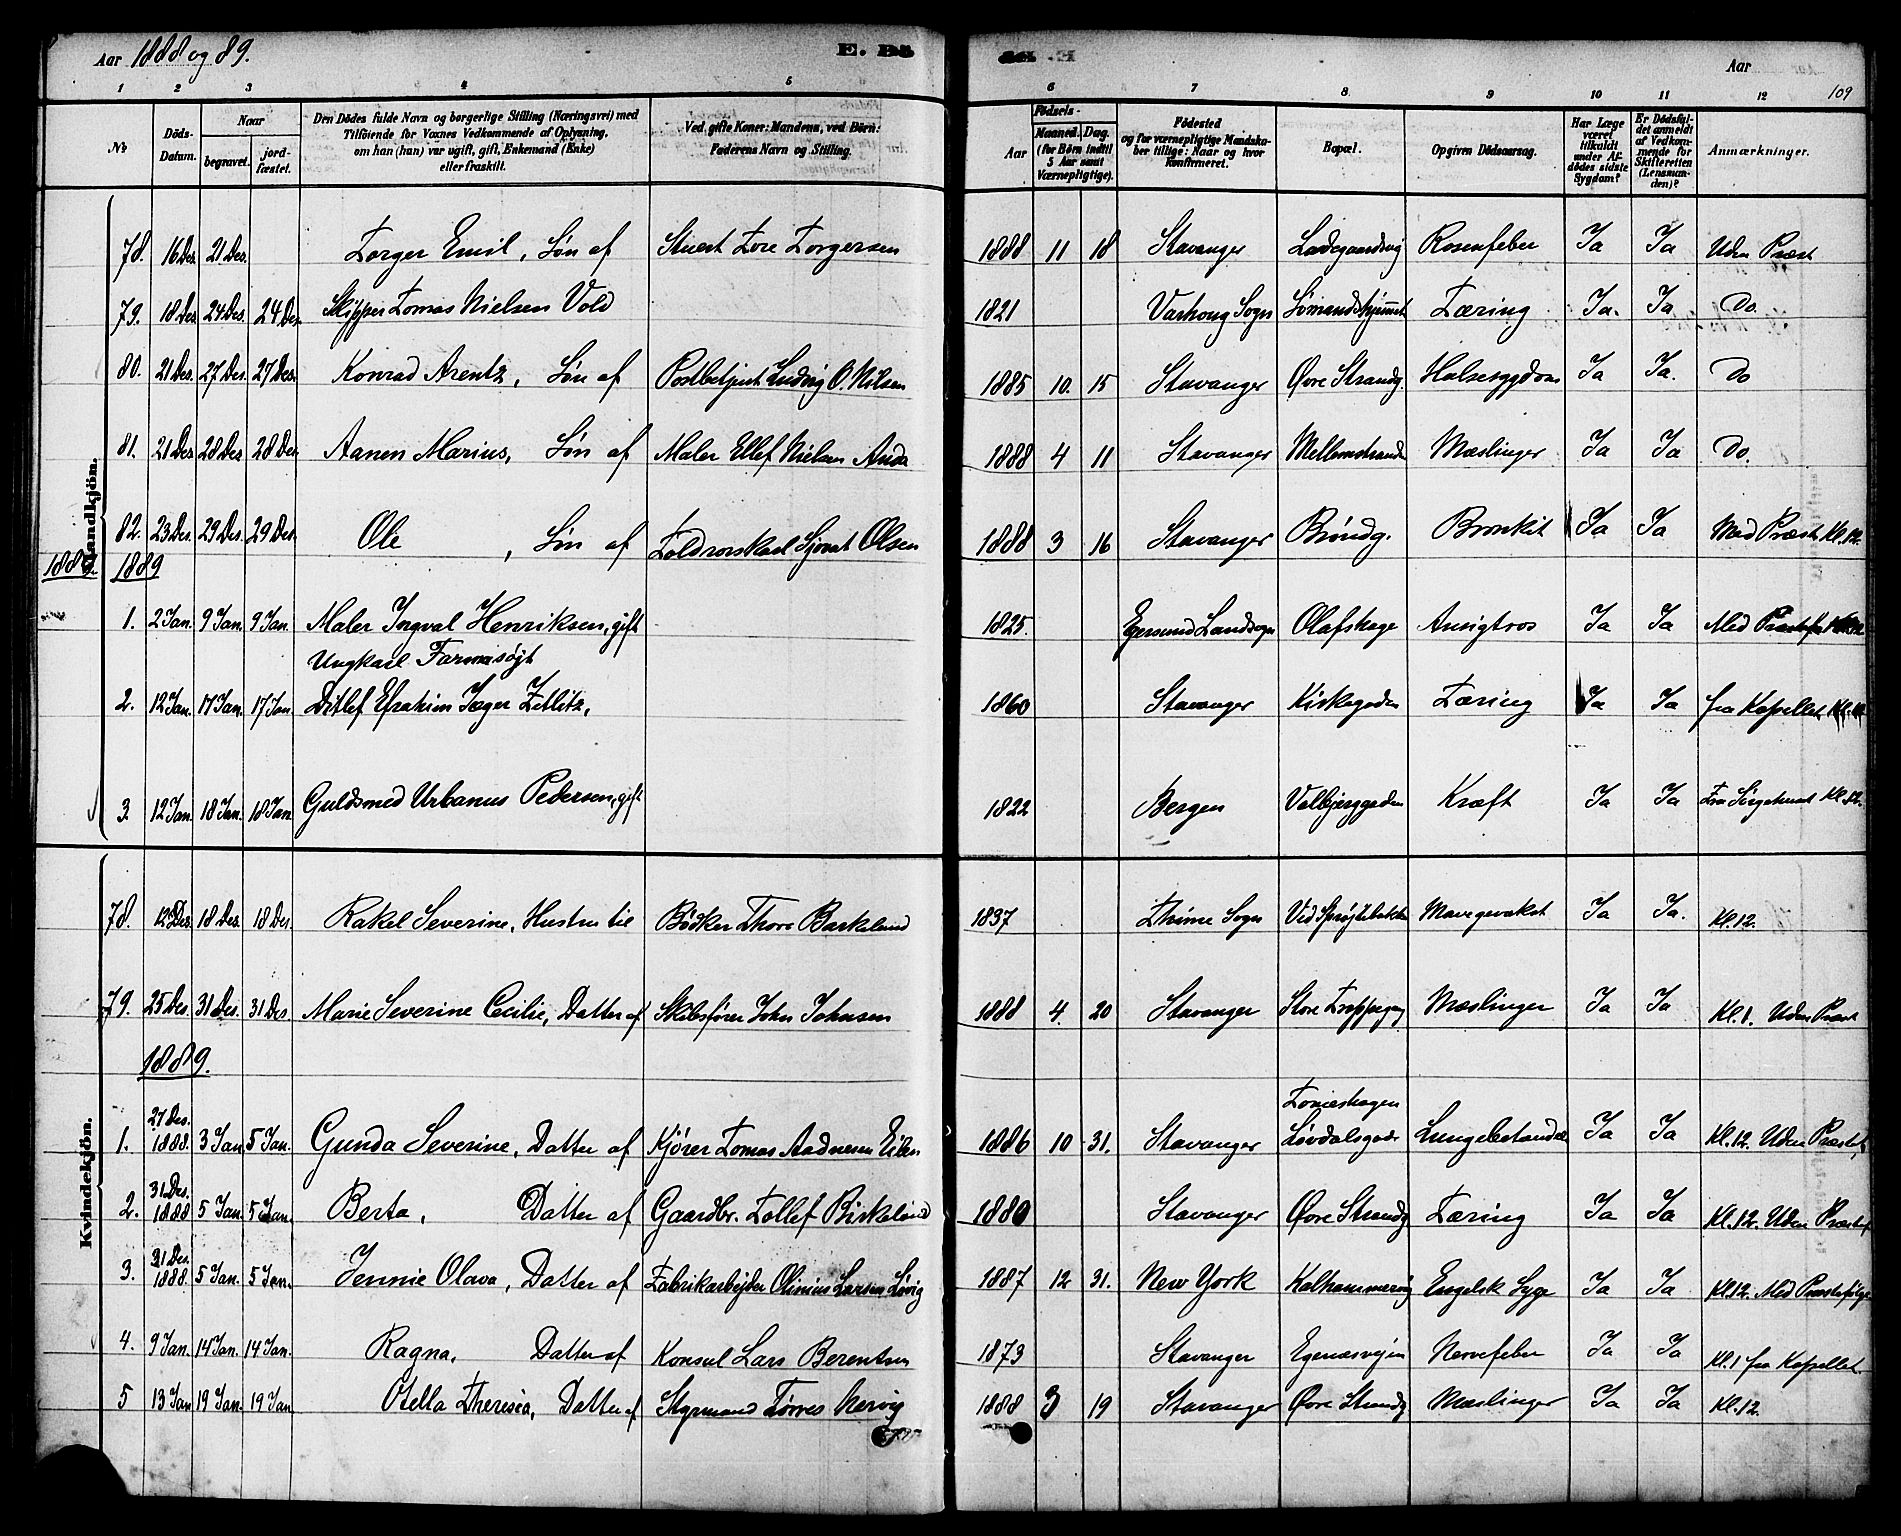 Aar 1888 og 89.
E. Dö
Aar
109
1 2 3 4 5 6 7 8 9 10 11 12
No
Döds-Datum.
Naar
begravet.
jord-fæstet.
Den Dödes fulde Navn og borgerlige Stilling (Næringsvei) med
Tilföiende for Voxnes Vedkommende af Oplysning,
om han (hun) var ugift, gift, Enkemand (Enke)
eller fraskilt.
Ved gifte Koner: Mandens, ved Börn:
Faderens Navn og Stilling.
Födsels-
Aar
Maaned. Dag.
(for Börn indtil
5 Aar samt
Værnepligtige).
Födested
og for værnepligtige Mandska-
ber tillige: Naar og hvor
konfirmeret.
Bopæl.
Opgiven Dödsaarsag.
Har Læge
været
tilkaldt
under Af-
dödes sidste
Sygdom?
Er Dödsfal-
det anmeldt
af Vedkom-
mende for
Skifteretten
(Lensman-
den)?
Anmærkninger.
Mandkjön.
78. 16 Des. 21 Des. Torger Emil, Søn af Stuert Tore Torgersen 1888 11 18 Stavanger Ladegaardsvg Rosenfeber Ja Ja Uden Præst
79. 18 Des 24 Des. 24 Des. Skipper Tomas Nielsen Vold 1821 Varhoug Sogn Sømandshjemmet Tæring Ja. Ja Do.
80. 21 Des. 27 Des. 27 Des. Konrad Arentz, Søn af Postbetjent Ludvig O. Nilsen 1885 10. 15 Stavanger Øvre Strandg. Halssygdom Ja Ja. Do
81. 21 Des 28 Des 28 Des Aanen Marius, Søn af Maler Ellef Nielsen Anda 1888 4 11 Stavanger Mellemstrande Mæslinger Ja Ja Do.
82. 23 Des. 29 Des. 29 Des Ole, Søn af Toldrorskarl Sjovat Olsen 1888 3 16 Stavanger Brøndg. Bronkit Ja Ja Med Præst Kl. 12.
1889. 1889
1. 2 Jan. 9 Jan. 9 Jan. Maler Ingval Henriksen, gift 1825. Egersund Landsogn Olafskage Ansigtros Ja Ja Med
Ungkarl Farmasøjt
2. 12 Jan. 17 Jan. 17 Jan. Ditlef Efrahim Jæger Zetlitz, 1860 Stavanger Kirkegaden Tæring Ja Ja fra Kapellet
3. 12 Jan. 18 Jan. 18 Jan. Guldsmed Urbanus Pedersen, gift 1822 Bergen Valbjerggaden Kræft Ja Ja Fra Sørgehuset Kl. 12.
Kvindekjön.
78. 12 Des. 18 Des. 18 Des. Rakel Severine, Hustru til Bødker Thore Barkeland 1837 Thime Sogn Ved Sprøjtebakken Mavegevækst Ja Ja. Kl. 12.
79. 25 Des. 31 Des. 31 Des. Marie Severine Cecilie, Datter af Skibsfører John Johnsen 1888 4. 20 Stavanger Store Trappegang Mæslinger Ja Ja Kl. 1. Uden Præst
1889.
27 Des. Tomæshagen
1. 1888. 3 Jan 5 Jan. Gunda Severine, Datter af Kjører Tomas Aadnesen Eilen 1886 10 31. Stavanger Løvdalsgade Lungebetændelse Ja Ja Kl. 12. Uden Præstef.
31 Des.
2. 1888 5 Jan. 5 Jan. Berta, Datter af Gaardbr. Tollef Birkeland 1880 Stavanger Øvre Strandg Tæring Ja Ja Kl. 12. Uden Præstef.
31 Des.
3. 1888. 5 Jan. 5 Jan. Jennie Olava, Datter af Fabrikarbejder Olinius Larsen Løvig 1887 12 31. New York Kalhammervig Engelsk Syge Ja Ja Kl. 12. Med Præstefølge
4. 9 Jan. 14 Jan. 14 Jan. Ragna, Datter af Konsul Lars Berentsen 1873 Stavanger Egenæsvejen Nervefeber Ja Ja Kl. 1 fra Kapellet
5 13 Jan 19 Jan. 19 Jan Otella Theresia, Datter af Styrmand Tørres Nervig 1888 3 19 Stavanger Øvre Strandg Mæslinger Ja Ja Kl. 12.